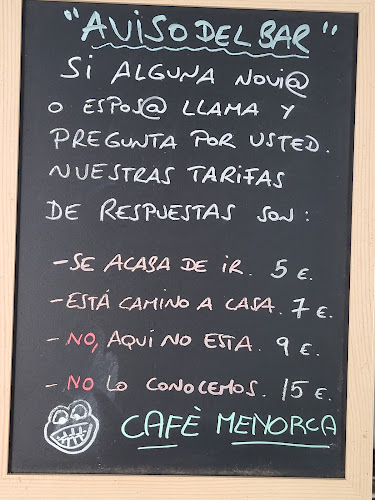 "AVISO DEL BAR"
SI ALGUNA NOVI@
O ESPOS@ LLAMA Y
PREGUNTA POR USTED.
NUESTRAS TARIFAS
DE RESPUESTAS SON:
- SE ACABA DE IR. 5 €.
- ESTÁ CAMINO A CASA. 7 €.
- NO, AQUÍ NO ESTA. 9 €.
- NO LO CONOCEMOS. 15 €.
CAFÈ MENORCA